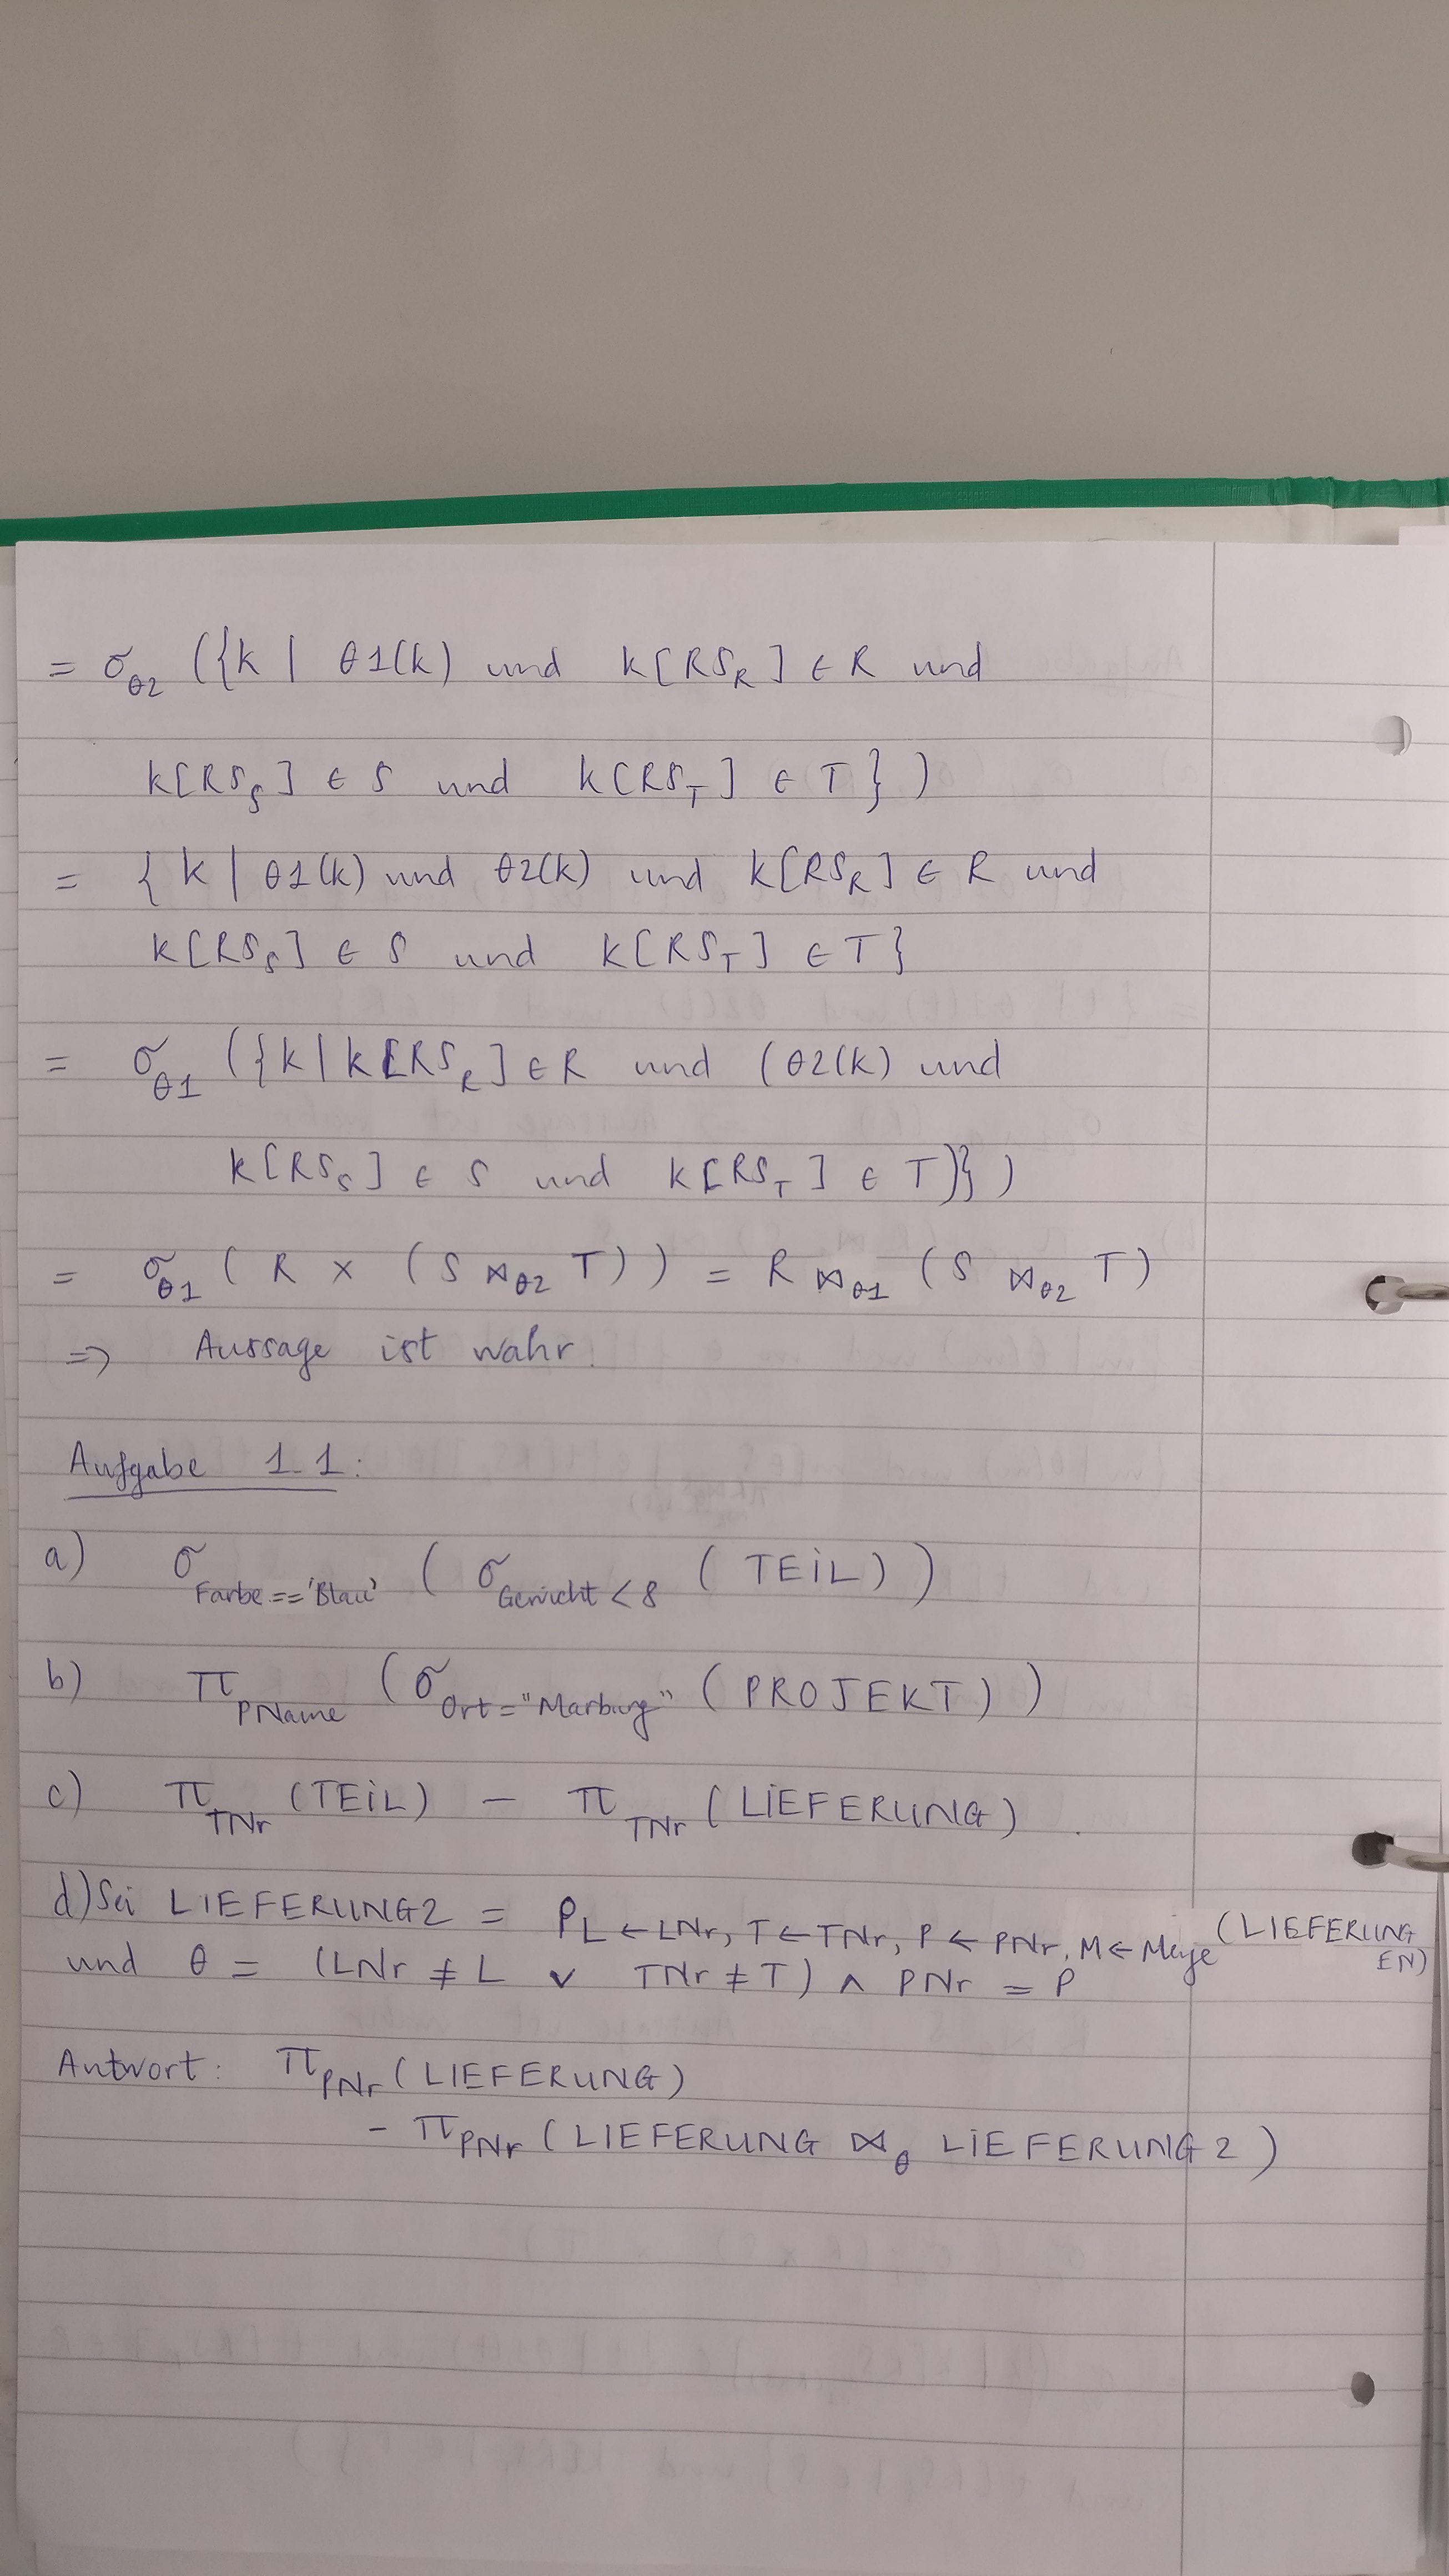 = σ_θ2 ({k | θ1(k) und k[RS_R] ∈ R und
k[RS_S] ∈ S und k[RS_T] ∈ T})
= {k | θ1(k) und θ2(k) und k[RS_R] ∈ R und
k[RS_S] ∈ S und k[RS_T] ∈ T}
= σ_θ1 ({k | k[RS_R] ∈ R und (θ2(k) und
k[RS_S] ∈ S und k[RS_T] ∈ T)})
= σ_θ1 (R × (S ⋈_θ2 T)) = R ⋈_θ1 (S ⋈_θ2 T)
=> Aussage ist wahr.
Aufgabe 1.1:
a) σ_Farbe=='Blau' (σ_Gewicht<8 (TEiL))
b) π_PName (σ_Ort="Marburg" (PROJEKT))
c) π_TNr (TEiL) − π_TNr (LiEFERUNG)
d) Sei LIEFERUNG2 = ρ_L←LNr, T←TNr, P←PNr, M←Menge (LIEFERUNGEN)
und θ = (LNr ≠ L ∨ TNr ≠ T) ∧ PNr = P
Antwort: π_PNr (LIEFERUNG)
− π_PNr (LIEFERUNG ⋈_θ LiEFERUNG2)